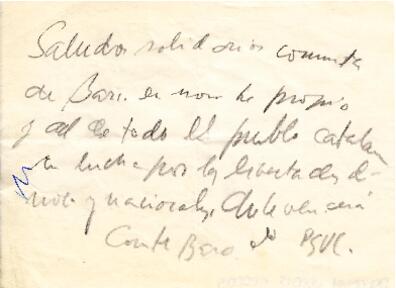 Saludos solidarios comunista
de Barc. en nombre propio
y el de todo el pueblo catalan
en lucha por las libertades de-
y nacionales. Chile vencerá
Comite Barc. del PSUC.